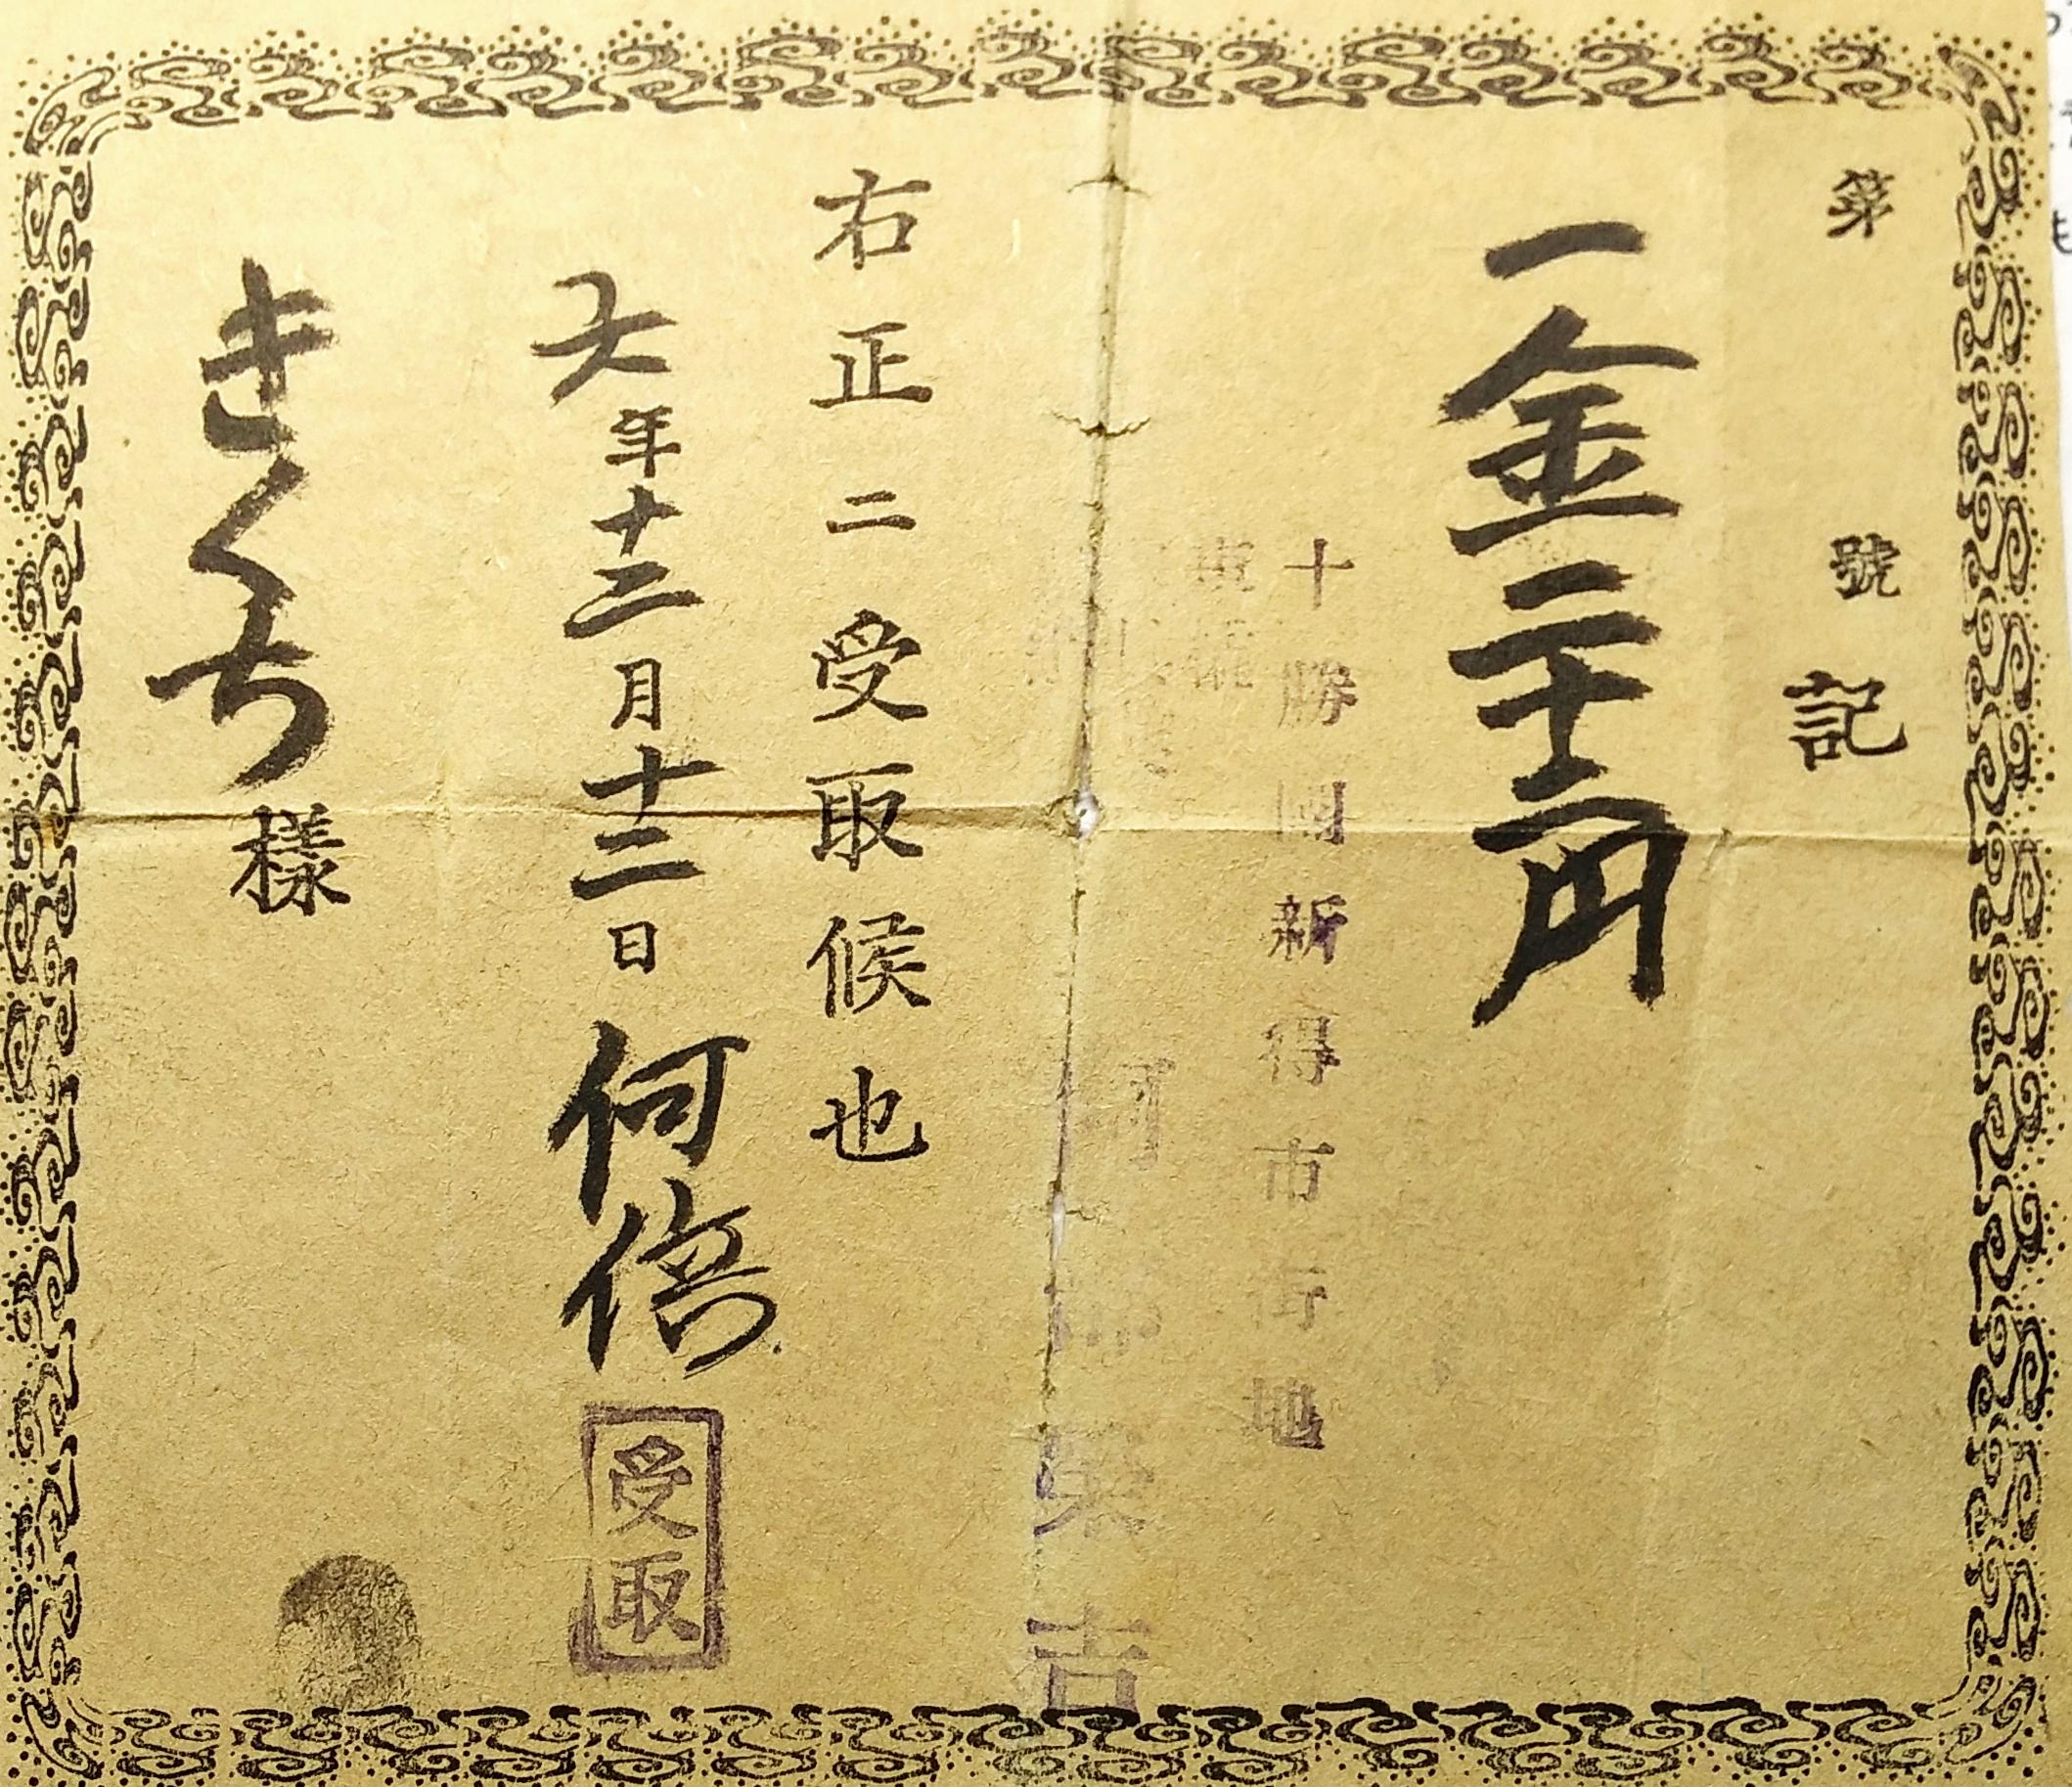 第 號
記
一金二十二円
十勝國新得市街地
吉
右正二受取候也
六年十二月十二日 何倍
受取
きくち様